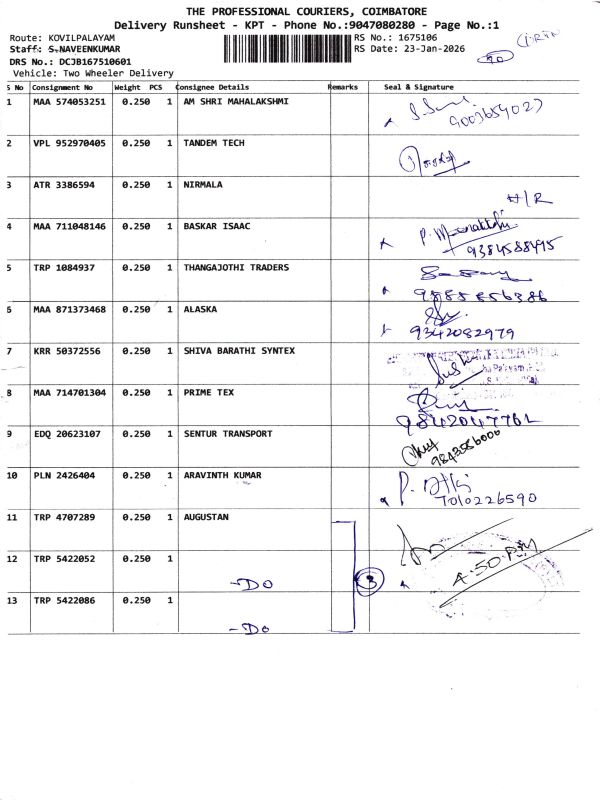 THE PROFESSIONAL COURIERS, COIMBATORE
Delivery Runsheet - KPT - Phone No.:9047080280 - Page No.:1
Route: KOVILPALAYAM RS No.: 1675106
Staff: S.NAVEENKUMAR RS Date: 23-Jan-2026
DRS No.: DCJB167510601
Vehicle: Two Wheeler Delivery
S No Consignment No Weight PCS Consignee Details Remarks Seal & Signature
1 MAA 574053251 0.250 1 AM SHRI MAHALAKSHMI
9003659027
2 VPL 952970405 0.250 1 TANDEM TECH
3 ATR 3386594 0.250 1 NIRMALA
H/R
4 MAA 711048146 0.250 1 BASKAR ISAAC
9384588495
5 TRP 1084937 0.250 1 THANGAJOTHI TRADERS
9585856386
6 MAA 871373468 0.250 1 ALASKA
9342082979
7 KRR 50372556 0.250 1 SHIVA BARATHI SYNTEX
8 MAA 714701304 0.250 1 PRIME TEX
9842047762
9 EDQ 20623107 0.250 1 SENTUR TRANSPORT
9843586006
10 PLN 2426404 0.250 1 ARAVINTH KUMAR
7010226590
11 TRP 4707289 0.250 1 AUGUSTAN
12 TRP 5422052 0.250 1 -DO 3 4.50 PM
13 TRP 5422086 0.250 1 -DO